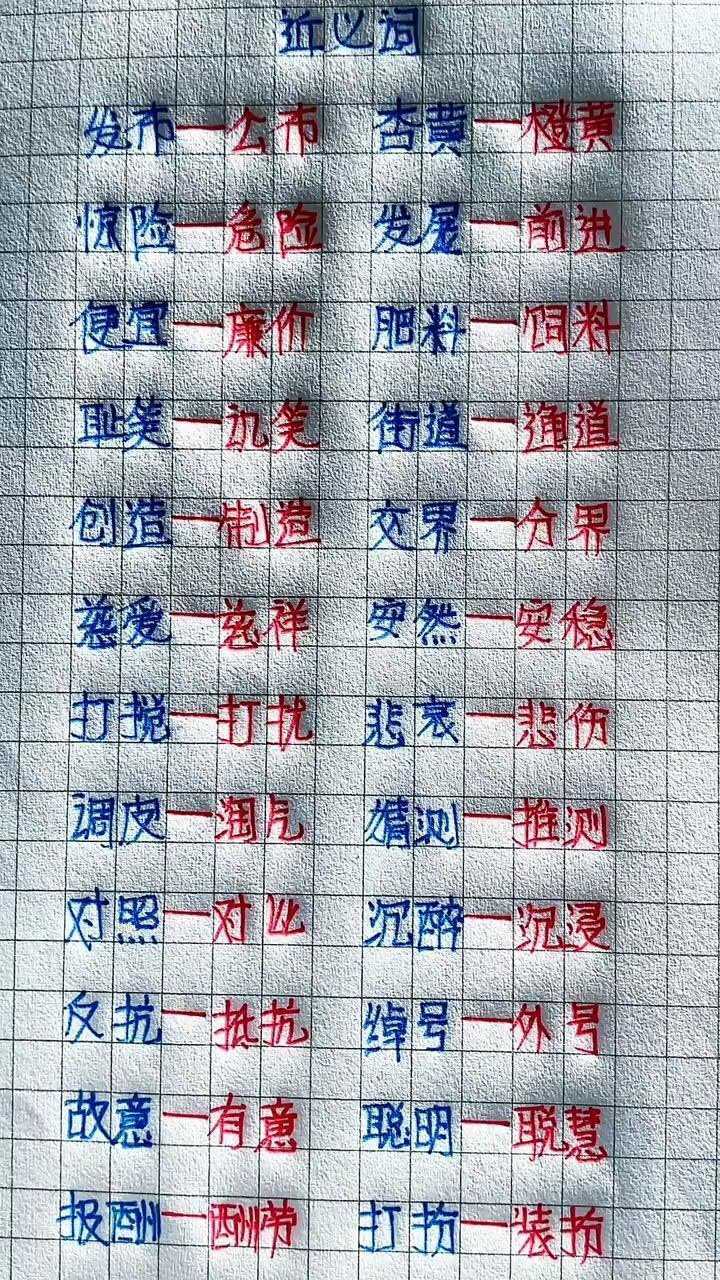 近义词
发布—公布 杏黄—橙黄
惊险—危险 发展—前进
便宜—廉价 肥料—饲料
耻笑—讥笑 街道—通道
创造—制造 交界—分界
慈爱—慈祥 安然—安稳
打搅—打扰 悲哀—悲伤
调皮—淘气 猜测—推测
对照—对比 沉醉—沉浸
反抗—抵抗 绰号—外号
故意—有意 聪明—聪慧
报酬—酬劳 打扮—装扮